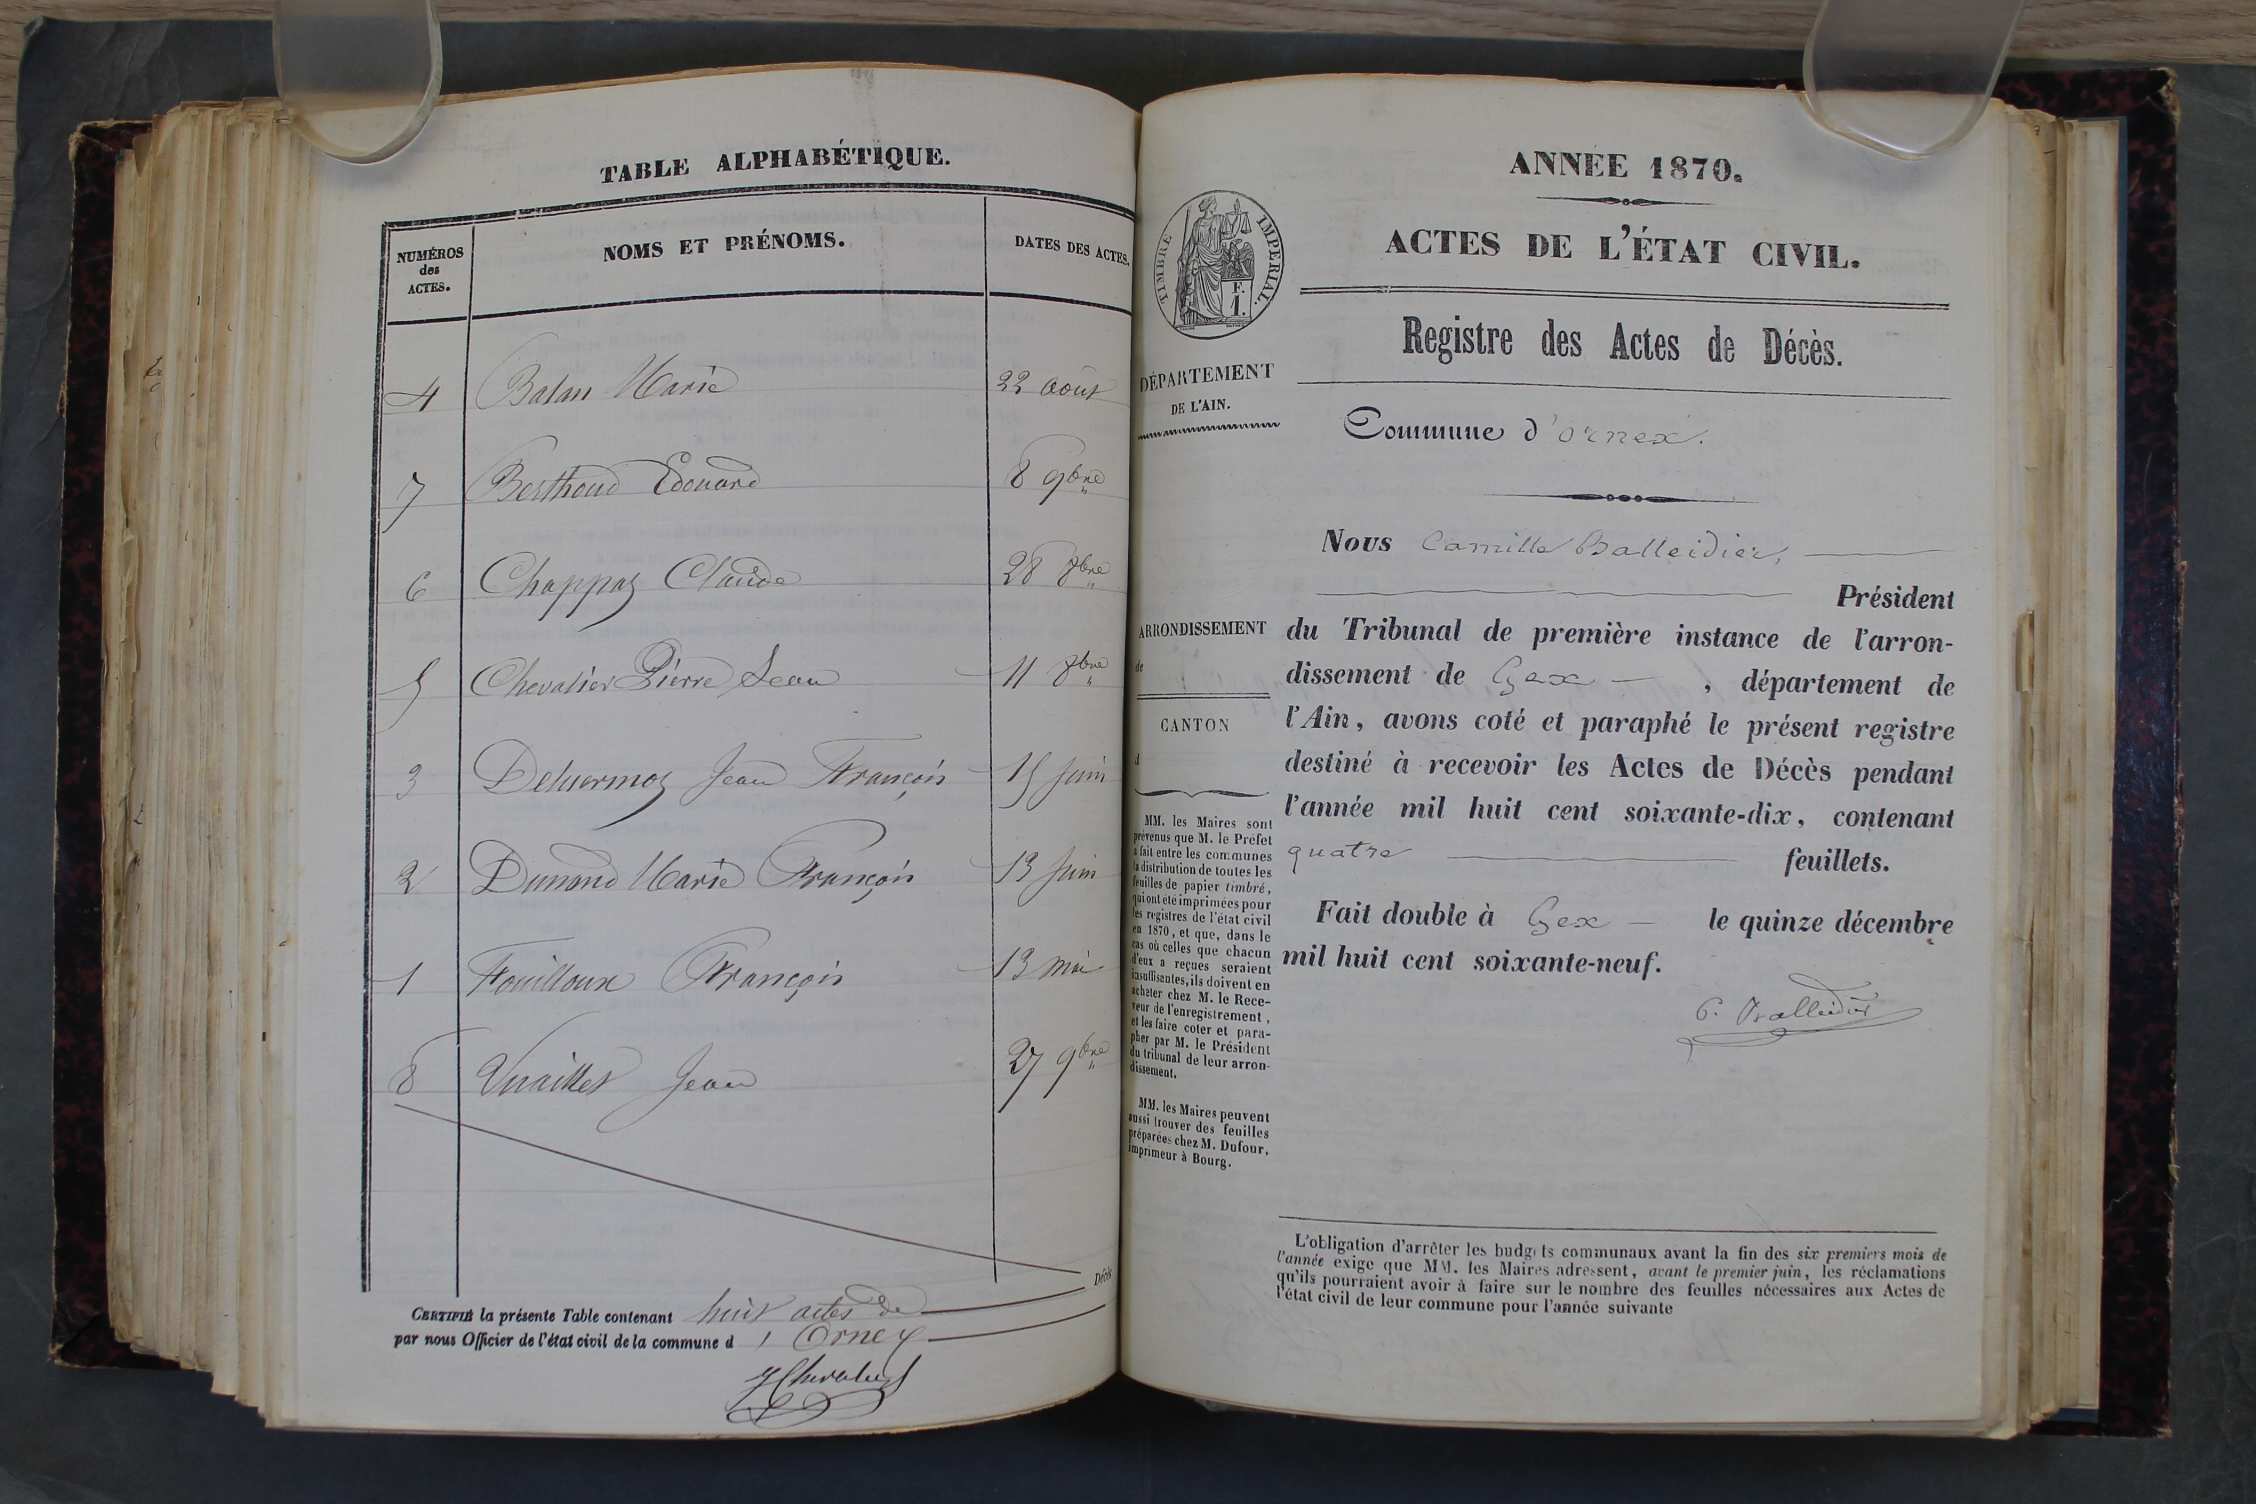 TABLE ALPHABÉTIQUE.
NUMÉROS
des
ACTES.
NOMS ET PRÉNOMS.
DATES DES ACTES.
4 Balan Marie 22 août
7 Berthoud Edouard 8 9bre
6 Chappaz Claude 28 8bre
5 Chevalier Pierre Jean 11 8bre
3 Deluermoz Jean François 15 Juin
2 Dunand Marie François 13 Juin
1 Fouilloux François 13 mai
8 Vuaillet Jean 27 9bre
CERTIFIÉ la présente Table contenant huit actes de Décès
par nous Officier de l'état civil de la commune d' Ornex
ANNÉE 1870.
ACTES DE L'ÉTAT CIVIL.
TIMBRE IMPERIAL.
F.
1.
Registre des Actes de Décès.
DÉPARTEMENT
DE L'AIN.
Commune d'Ornex.
Nous Camille Balleidier,
Président
ARRONDISSEMENT
de
CANTON
d
du Tribunal de première instance de l'arron-
dissement de Gex , département de
l'Ain, avons coté et paraphé le présent registre
destiné à recevoir les Actes de Décès pendant
l'année mil huit cent soixante-dix, contenant
quatre feuillets.
Fait double à Gex le quinze décembre
mil huit cent soixante-neuf.
C. Balleidier
MM. les Maires sont
prévenus que M. le Préfet
a fait entre les communes
la distribution de toutes les
feuilles de papier timbré,
qui ont été imprimées pour
les registres de l'état civil
en 1870, et que, dans le
cas où celles que chacun
d'eux a reçues seraient
insuffisantes, ils doivent en
acheter chez M. le Rece-
veur de l'enregistrement,
et les faire coter et para-
pher par M. le Président
du tribunal de leur arron-
dissement.
MM. les Maires peuvent
aussi trouver des feuilles
préparées chez M. Dufour,
imprimeur à Bourg.
L'obligation d'arrêter les budgets communaux avant la fin des six premiers mois de
l'année exige que MM. les Maires adressent, avant le premier juin, les réclamations
qu'ils pourraient avoir à faire sur le nombre des feuilles nécessaires aux Actes de
l'état civil de leur commune pour l'année suivante